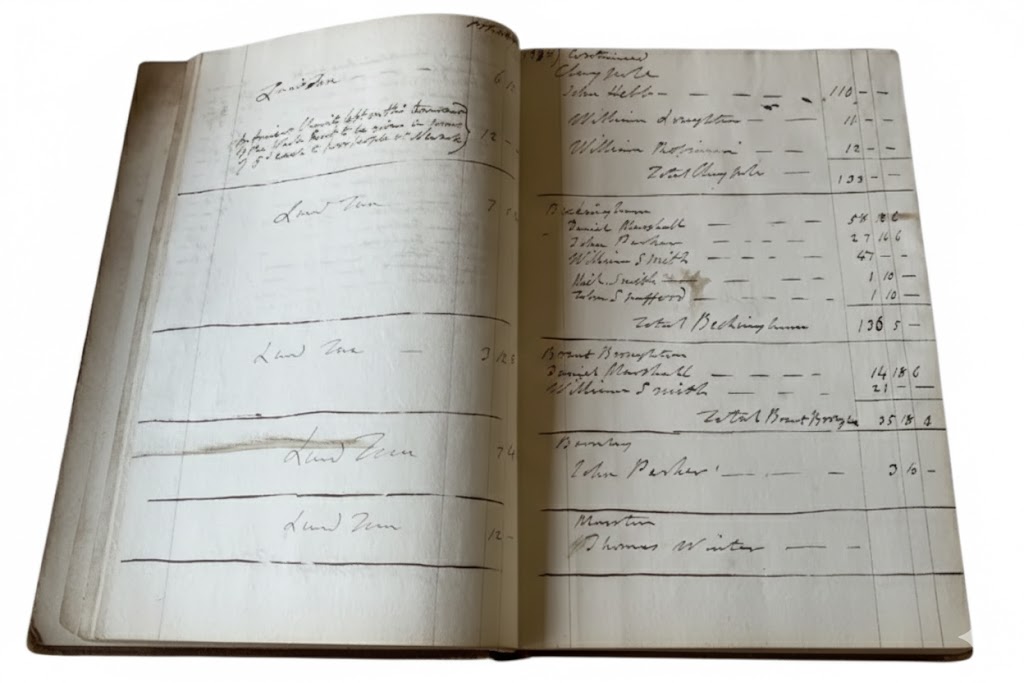 Land Tax — — — 6 12
An Ancient Charity left on this
of the to be given in
of 5 each to poor people at Newark
12 -
Land Tax 7
Land Tax — 3 12
Land Tax 7 4
Land Tax 12 -
continued
Claypole
John Hebb - — — — 110 - -
William Loughton — — — 11 - -
William — — — 12 - -
Total Claypole — 133 - -
Beckingham
Daniel Marshall — — — — 58
John Parker — — — — 27 16 6
William Smith — — — — 47 - -
Smith — — — — 1 10 -
John Stafford — — — — 1 10 -
Total Beckingham 136 5 -
Brant Broughton
Daniel Marshall — — — — 14 18 6
William Smith — — — — 21 - -
Total Brant 35 18
John Parker — — — — 3 -
Marston
Thomas Winter — — —